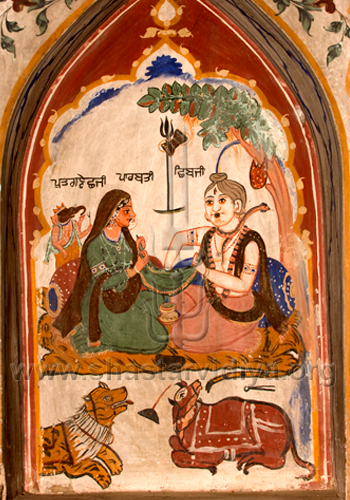 ਪੁਤਗਣੇਛਜੀ ਪਾਰਬਤੀ ਛਿਬਜੀ
www.shastarvidiya.org